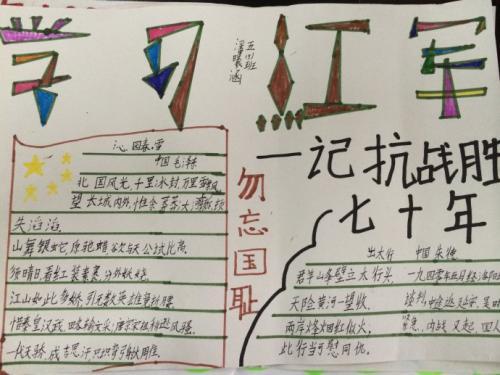 学习红军
五(1)班
一记抗战胜
七十年
勿忘国耻
沁园春雪
中国 毛泽东
北国风光,千里冰封,万里雪飘
望长城内外,惟余莽莽,大河
失滔滔
山舞银蛇,原驰蜡象,欲与天公试比高
须晴日,看红装素裹,分外妖娆
江山如此多娇,引无数英雄竞折腰
惜秦皇汉武,略输文采,唐宗宋祖稍逊风骚
一代天骄,成吉思汗,只识弯弓射大雕
出太行 中国 朱德
群峰壁立太行头,
天险黄河一望收,
两岸烽烟红似火,
此行当可慰同仇。
一九四零年五月经洛阳
谈判,中途返延安,
内战又起,四